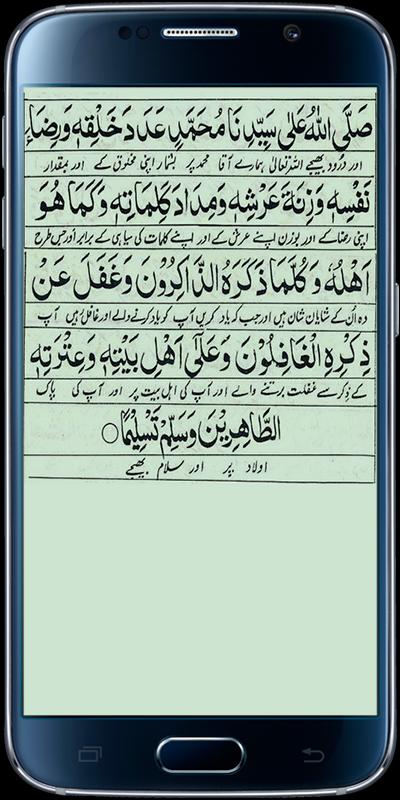 صَلَّى اللهُ عَلٰى سَيِّدِنَا مُحَمَّدٍ عَدَدَ خَلْقِهٖ وَرِضَاءِ
اور درود بھیجے اللہ تعالیٰ ہمارے آقا محمد پر بشمار اپنی مخلوق کے اور بمقدار
نَفْسِهٖ وَزِنَةَ عَرْشِهٖ وَمِدَادَ كَلِمَاتِهٖ وَكَمَا هُوَ
اپنی رضا کے اور بوزن اپنے عرش کے اور اپنے کلمات کی سیاہی کے برابر اور جس طرح
اَهْلُهٗ وَكُلَّمَا ذَكَرَهُ الذَّاكِرُوْنَ وَغَفَلَ عَنْ
وہ ان کے شایان شان ہیں اور جب کہ یاد کریں آپ کو یاد کرنے والے اور غافل ہیں آپ
ذِكْرِهِ الْغَافِلُوْنَ وَعَلٰٓى اَهْلِ بَيْتِهٖ وَعِتْرَتِهِ
کے ذکر سے غفلت برتنے والے اور آپ کی اہل بیت پر اور آپ کی پاک
الطَّاهِرِيْنَ وَسَلِّمْ تَسْلِيْمًا○
اولاد پر اور سلام بھیجے